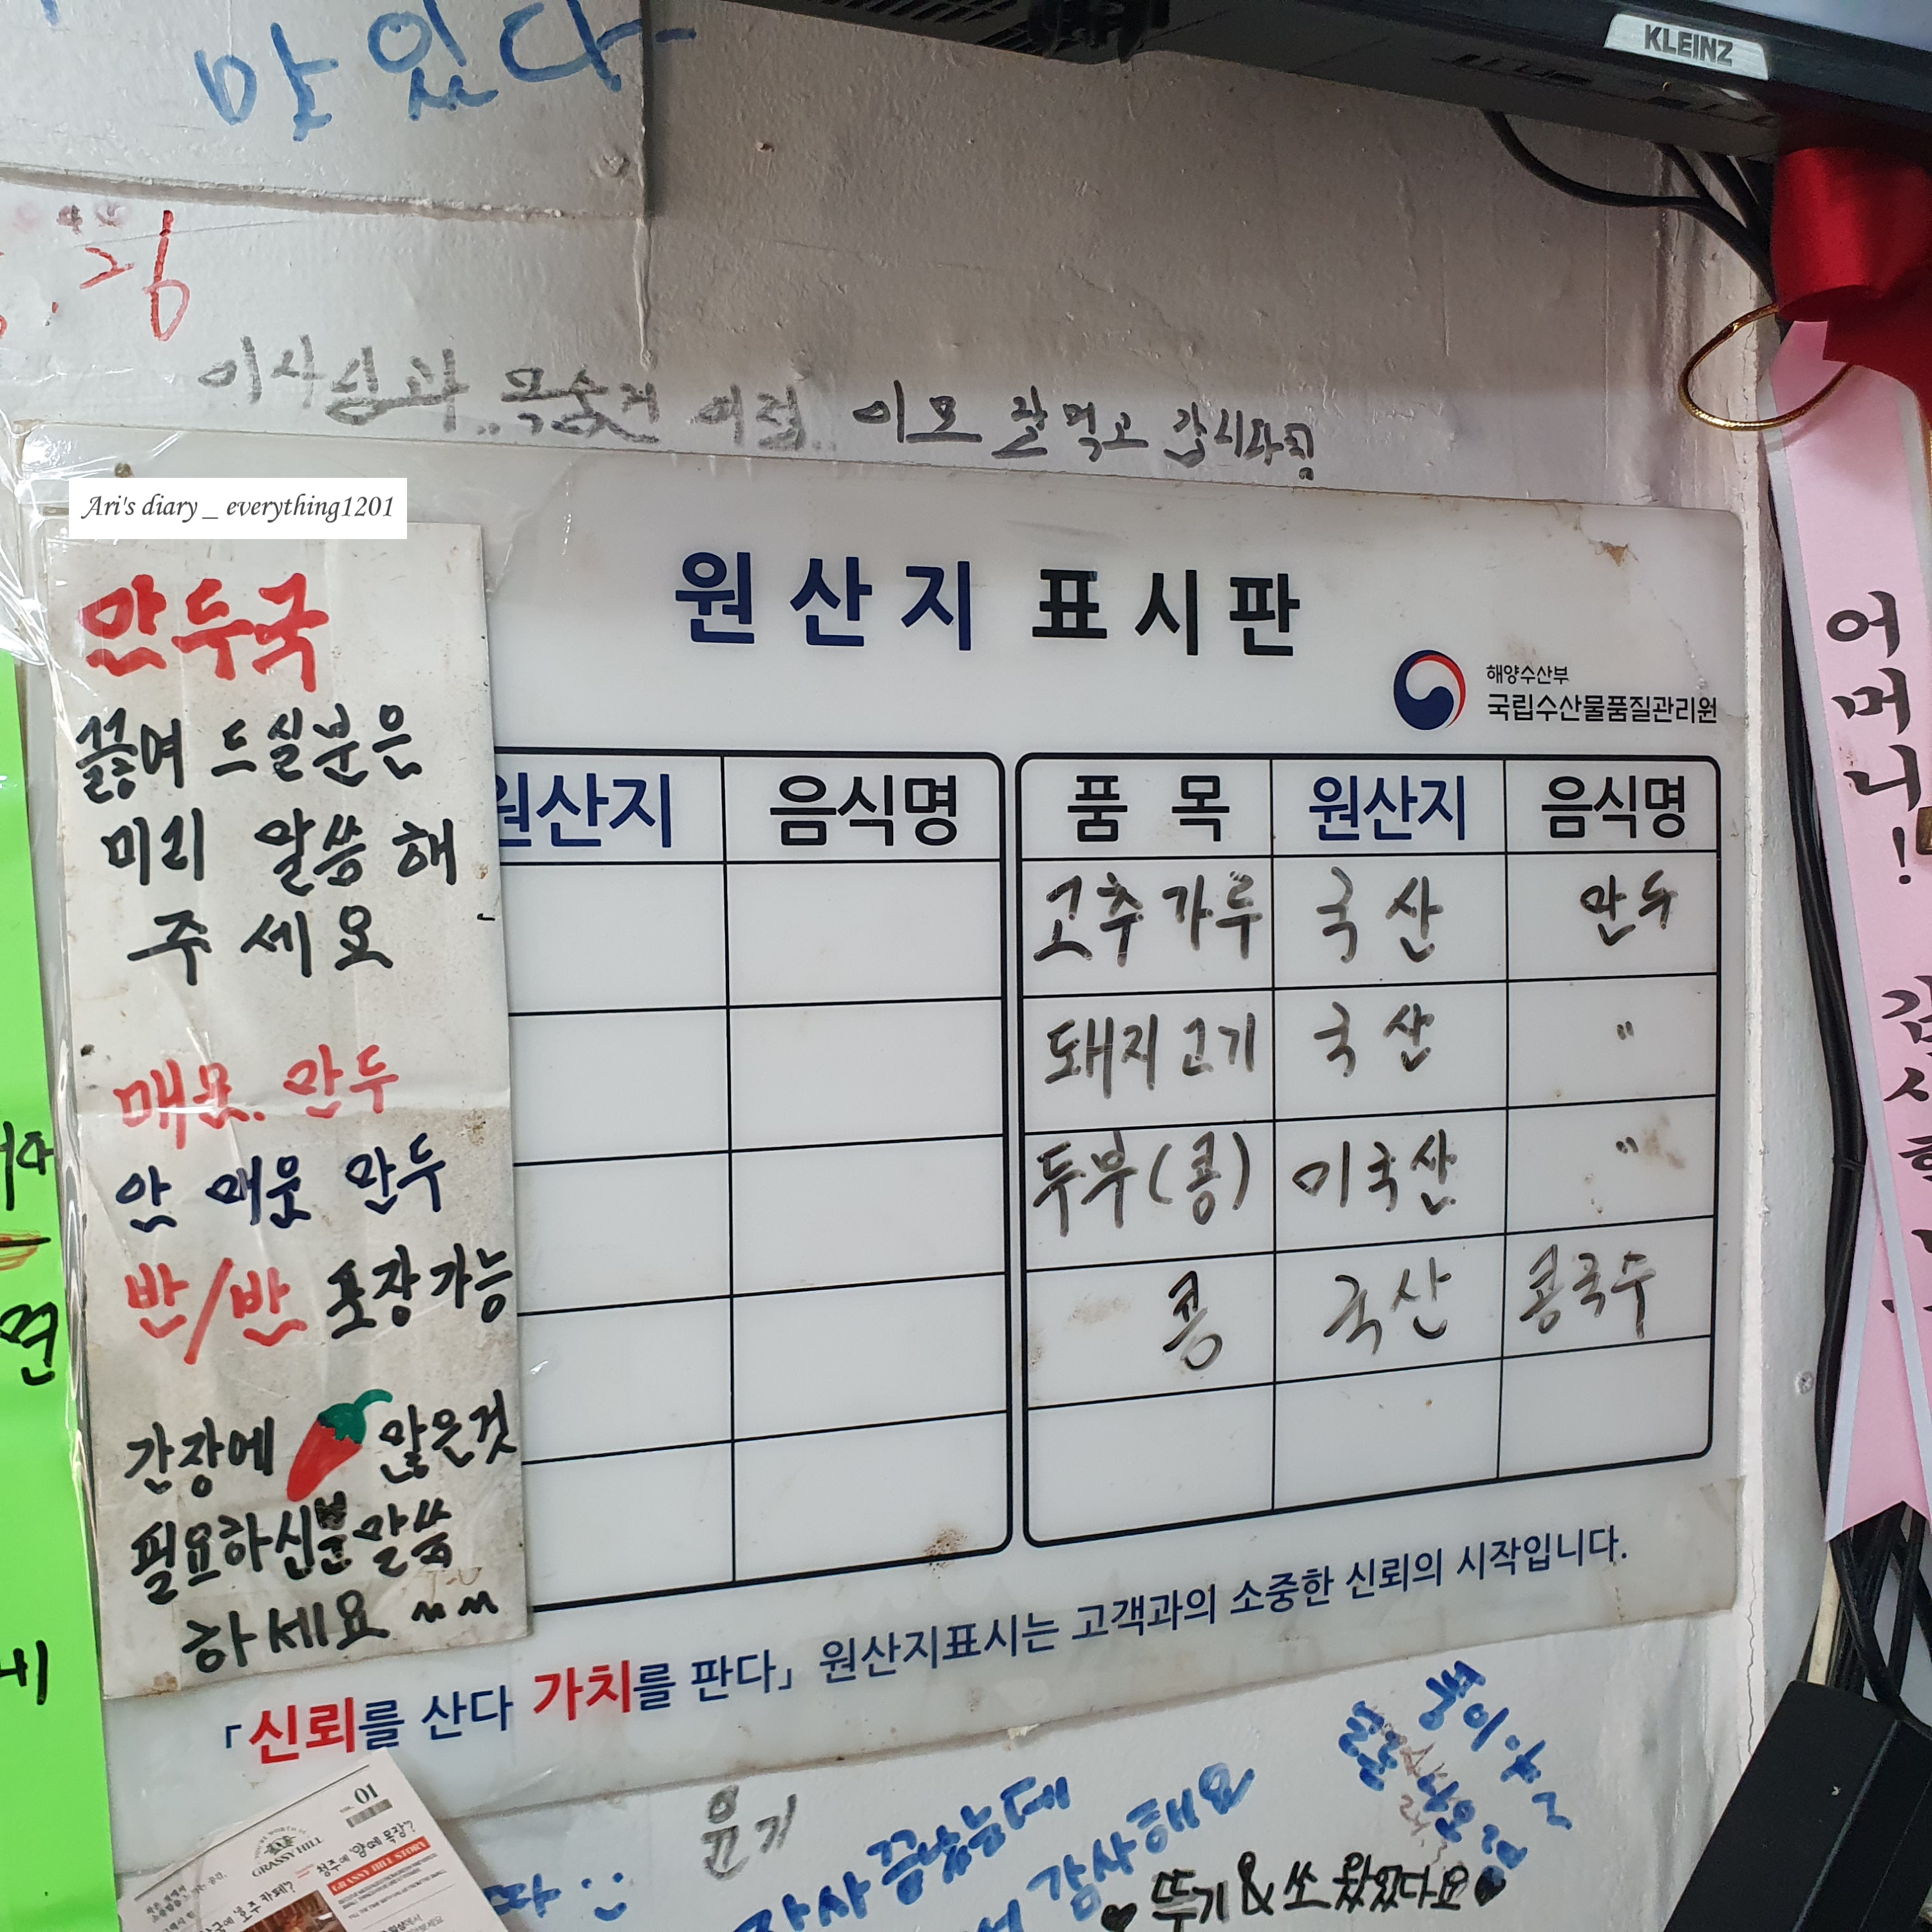 맛있다
KLEINZ
.26
이모 잘먹고 갑시다잉
Ari's diary _ everything1201
만두국
끓여 드실분은
미리 말씀해
주세요
매운.만두
안 매운 만두
반/반 포장가능
간장에 않은것
필요하신분말씀
하세요
원산지 표시판
해양수산부
국립수산물품질관리원
원산지 음식명
품 목 원산지 음식명
고추가루 국산 만두
돼지고기 국산 "
두부(콩) 미국산 "
콩 국산 콩국수
「신뢰를 산다 가치를 판다」 원산지표시는 고객과의 소중한 신뢰의 시작입니다.
어머니!
면
윤기
장사 끝났는데
감사해요
뚜기 & 쏘 왔었다요
01
GRASSY HILL
청주에 양떼 목장?
GRASSY HILL STORY
호주 카페?